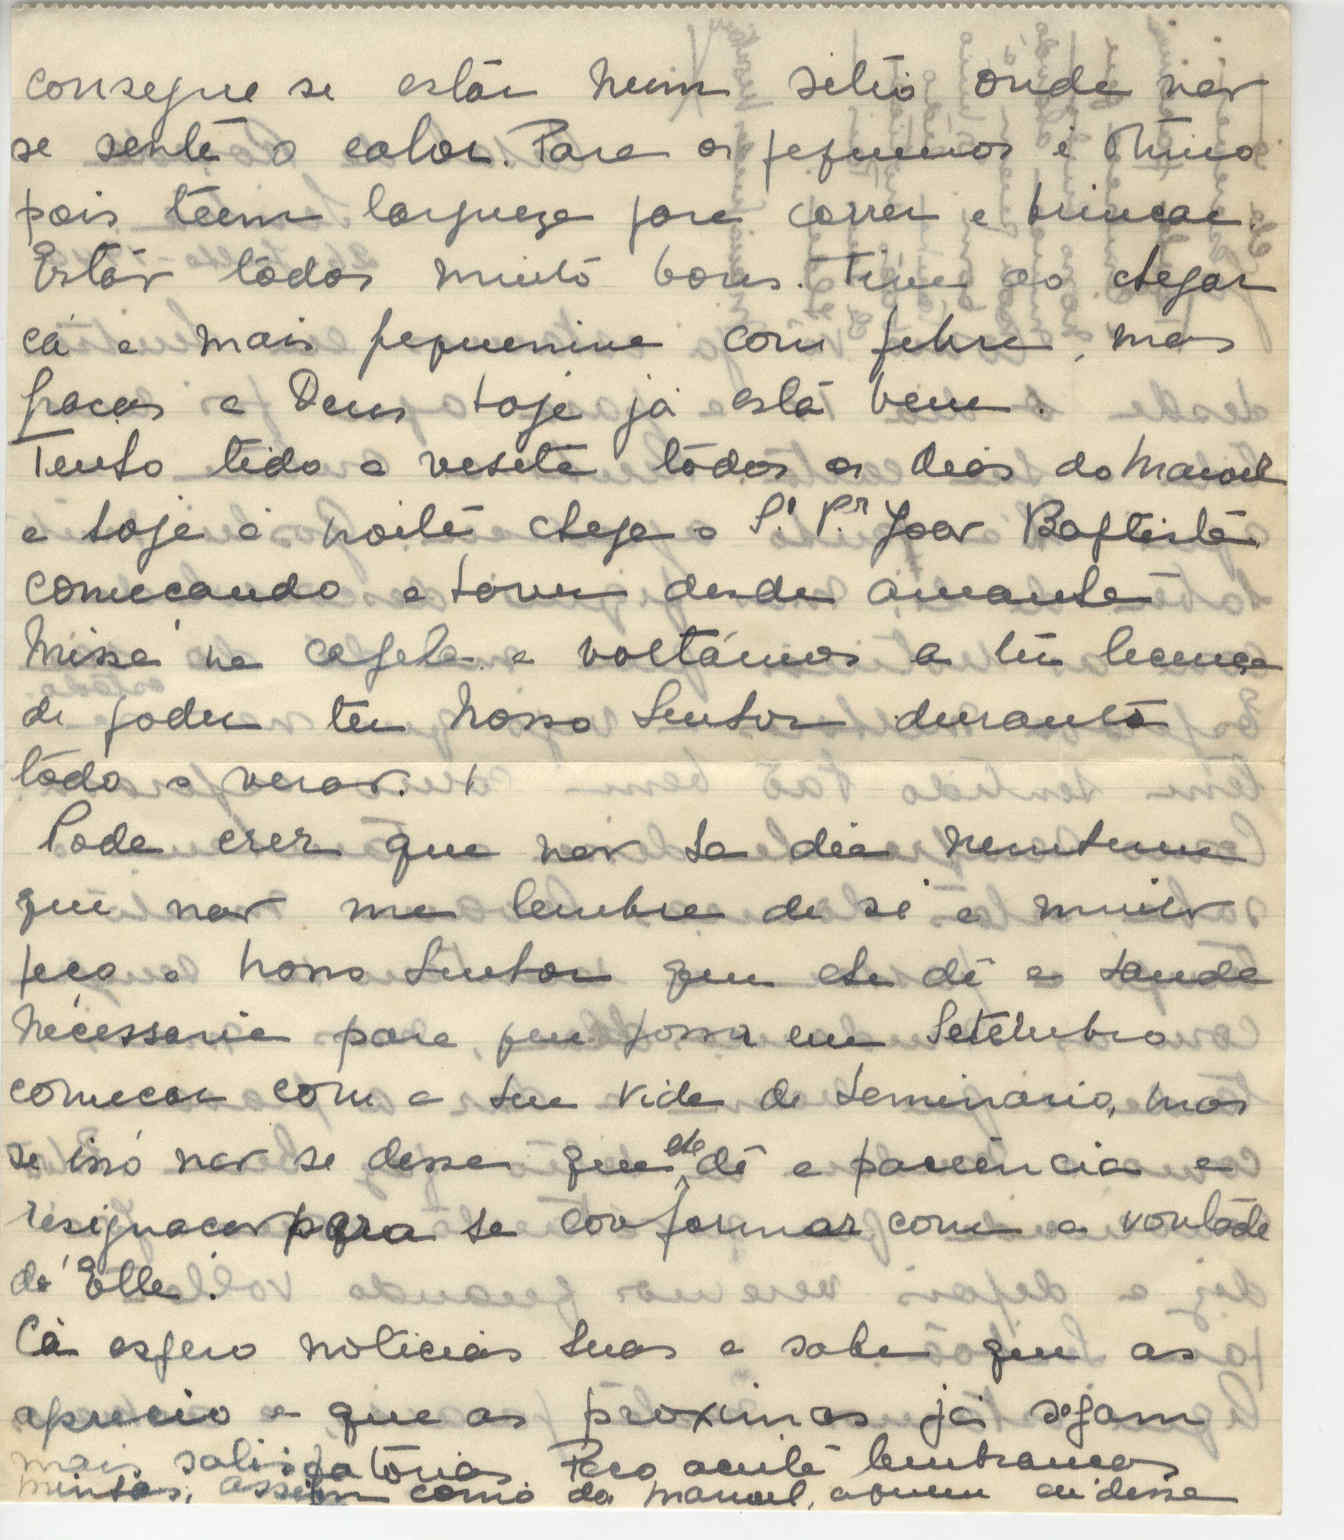 consegue se estár num sitio onde não
se sente o calor. Para os pequenos é ótimo
pois teem largueza para correr e brincar.
Estão todos muito bons. Tive ao chegar
cá a mais pequenina com febre, mas
graças a Deus hoje já está bem.
Tenho tido a vesita todos os dias do Manoel
e hoje á noite chega o S.r P.e João Baptista
começando a haver desde amanhã
Missa na capela e voltámos a ter licença
de poder ter Nosso Senhor durante
todo o verão.
Pode crer que não ha dia nenhum
que não me lembre de si e muito
peço a Nosso Senhor que lhe dê a saude
necessaria para que possa em Setembro
começar com a sua vida de Seminario, mas
se isso não se desse que lhe dê a paciencia e
resignação para se conformar com a vontade
de Elle.
Cá espero noticias suas e sabe que as
aprecio e que as proximas já sejam
mais satisfatórias. Peço aceite lembranças
minhas, assim como do Manoel, a quem eu disse